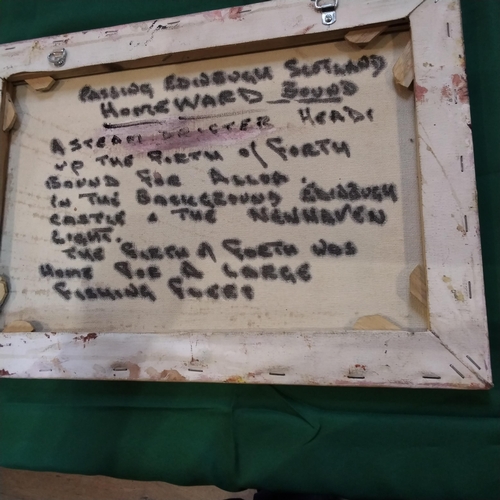 PASSING EDINBUGH SCOTLAND
HOMEWARD BOUND
A STEAM COASTER HEADS
UP THE FIRTH of FORTH
BOUND FOR ALLOA.
IN THE BACKGROUND EDINBUGH
CASTLE & THE NEWHAVEN
LIGHT.
THE FIRTH of FORTH WAS
HOME FOR A LARGE
FISHING FLEET